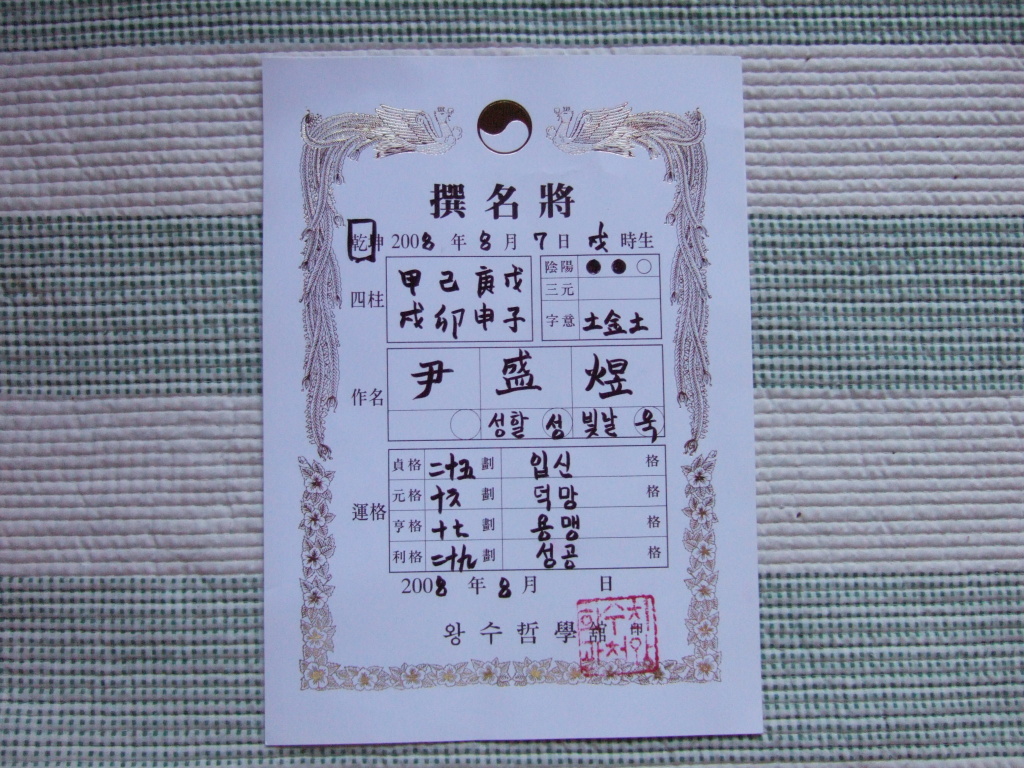 撰名將
乾坤 2008 年 8 月 7 日 戌 時生
四柱
甲 己 庚 戊
戌 卯 申 子
陰陽 ● ● ○
三元
字意 土金土
作名
尹 盛 煜
성할 성 빛날 욱
運格
貞格 二十五 劃 입신 格
元格 十六 劃 덕망 格
亨格 十七 劃 용맹 格
利格 二十九 劃 성공 格
2008 年 8 月 日
왕수哲學館 印